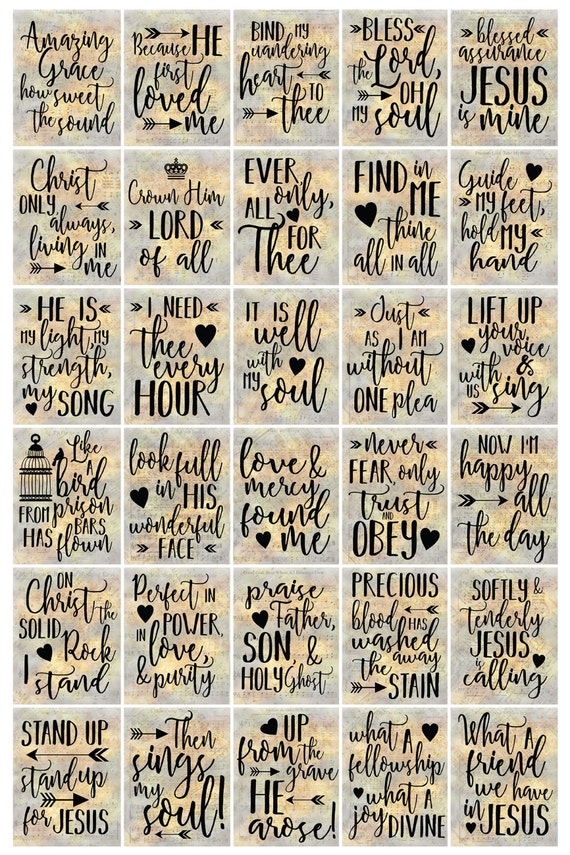 Amazing
Grace
how sweet
the sound
Because HE
first
loved
me
BIND my
wandering
heart
TO
thee
BLESS
the Lord,
OH
my
soul
blessed
assurance
JESUS
is mine
Christ
ONLY
always,
living in
me
Crown Him
LORD
of all
EVER
only,
ALL
FOR
Thee
FIND in
ME
thine
all IN all
Guide
MY feet,
hold MY
hand
HE IS
my light, my
strength,
my SONG
I NEED
thee
every
HOUR
IT IS
well
with
MY soul
Just
AS I AM
without
ONE plea
LIFT UP
your
voice
& with
US sing
Like
A
bird
FROM prison
BARS
HAS flown
look full
in HIS
wonderful
FACE
love &
mercy
found
me
never
FEAR, only
trust
AND
OBEY
NOW I'M
happy
all
the day
ON
Christ the
SOLID
Rock
I stand
Perfect IN
POWER,
IN love,
& purity
praise
Father,
SON &
HOLY Ghost
PRECIOUS
blood HAS
washed
the away
STAIN
SOFTLY &
tenderly
JESUS
is calling
STAND UP
stand up
for JESUS
Then
sings
my
soul!
UP
from the
grave
HE
arose!
what A
fellowship
what A
joy DIVINE
What A
friend
we have
in JESUS